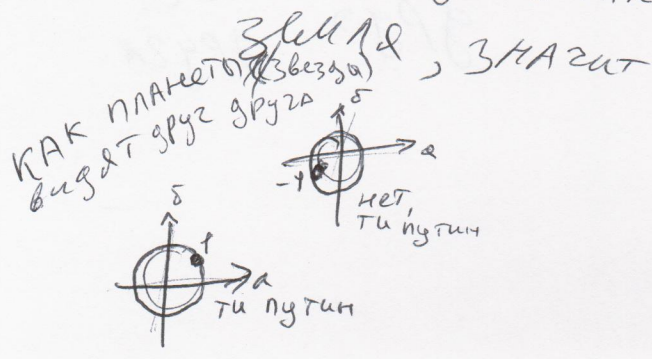 земля, значит
как планеты (звезда)
видят друг друга
б
а
-1
нет,
ти путин
б
1
а
ти путин